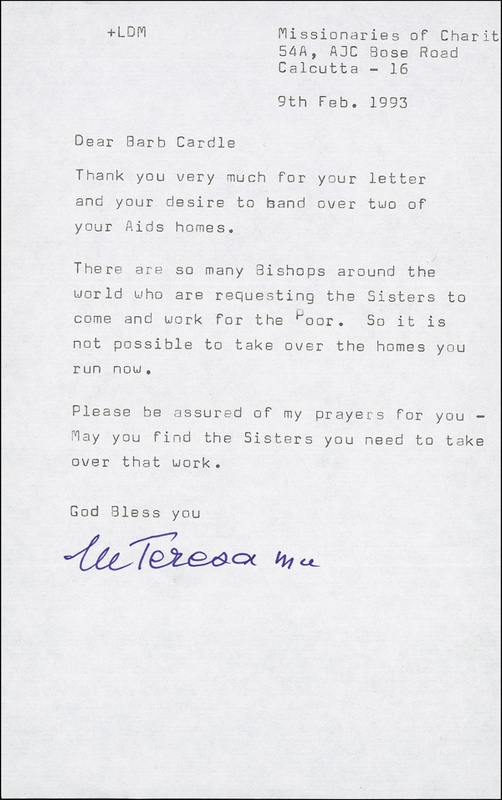 +LDM
Missionaries of Charit
54A, AJC Bose Road
Calcutta - 16
9th Feb. 1993
Dear Barb Cardle
Thank you very much for your letter
and your desire to hand over two of
your Aids homes.
There are so many Bishops around the
world who are requesting the Sisters to
come and work for the Poor.  So it is
not possible to take over the homes you
run now.
Please be assured of my prayers for you -
May you find the Sisters you need to take
over that work.
God Bless you
M Teresa mc